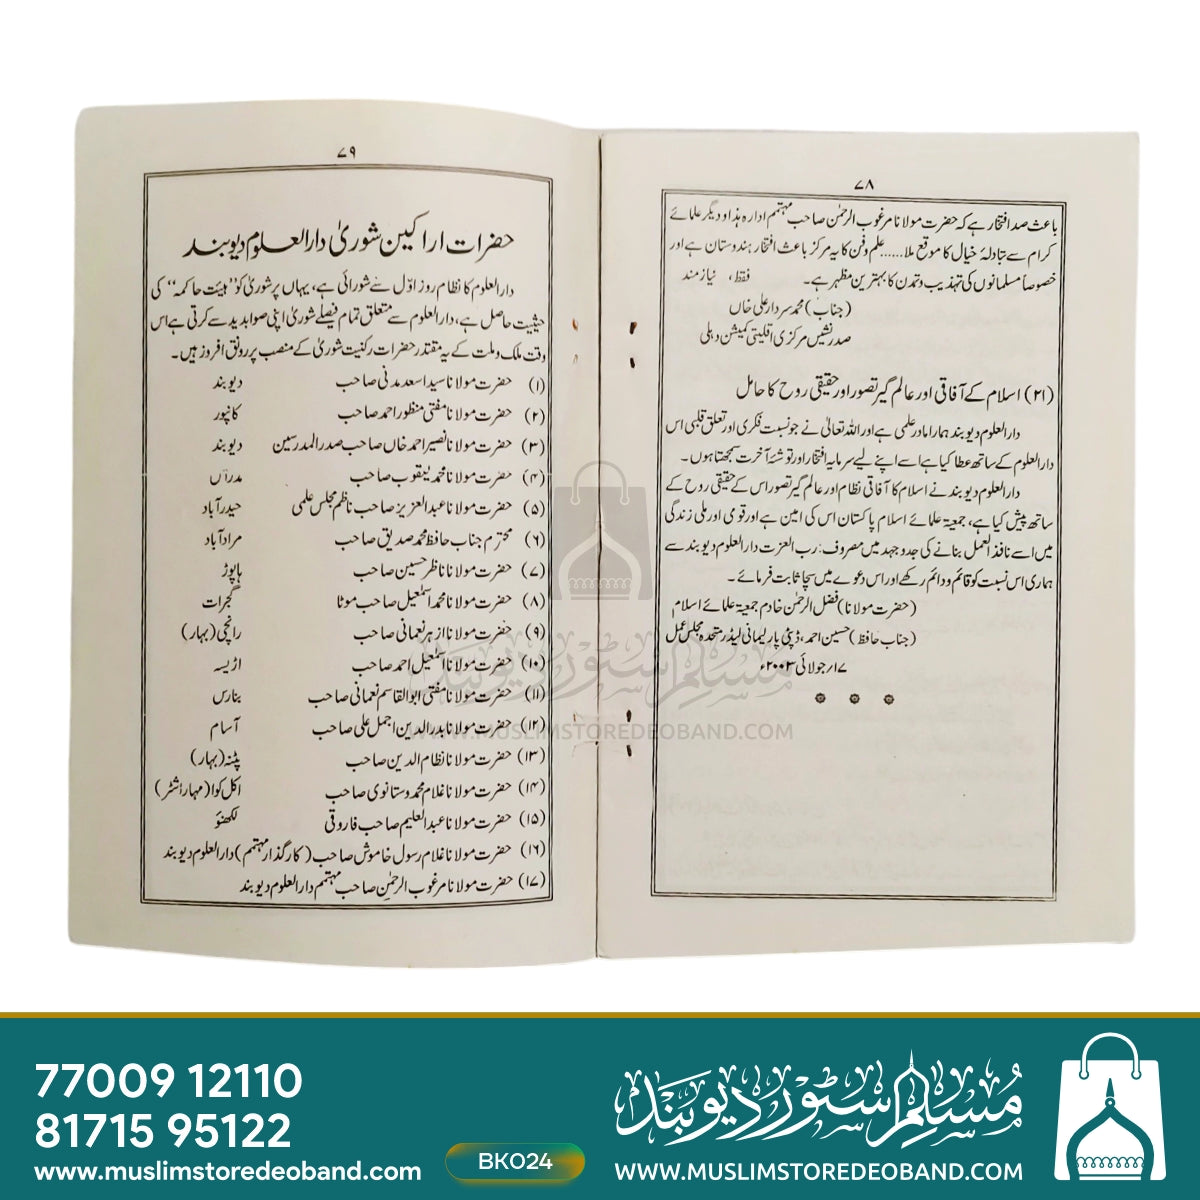 ۷۸
باعث صد افتخار ہے کہ حضرت مولانا مرغوب الرحمٰن صاحب مہتمم ادارہ ہذا و دیگر علمائے
کرام سے تبادلۂ خیال کا موقع ملا...... علم وفن کا یہ مرکز باعث افتخار ہندوستان ہے اور
خصوصاً مسلمانوں کی تہذیب وتمدن کا بہترین مظہر ہے۔ فقط، نیاز مند
(جناب) محمد سردار علی خاں
صدر نشیں مرکزی اقلیتی کمیشن دہلی
(۲۱) اسلام کے آفاقی اور عالم گیر تصور اور حقیقی روح کا حامل
دارالعلوم دیوبند ہمارا مادر علمی ہے اور اللہ تعالیٰ نے جو نسبت فکری اور تعلق قلبی اس
دارالعلوم کے ساتھ عطا کیا ہے اسے اپنے لیے سرمایہ افتخار اور توشۂ آخرت سمجھتا ہوں۔
دارالعلوم دیوبند نے اسلام کا آفاقی نظام اور عالم گیر تصور اس کے حقیقی روح کے
ساتھ پیش کیا ہے، جمعیۃ علمائے اسلام پاکستان اس کی امین ہے اور قومی اور ملی زندگی
میں اسے نافذ العمل بنانے کی جدوجہد میں مصروف۔ رب العزت دارالعلوم دیوبند سے
ہماری اس نسبت کو قائم و دائم رکھے اور اس دعوے میں سچا ثابت فرمائے۔
(حضرت مولانا) فضل الرحمٰن خادم جمعیۃ علمائے اسلام
(جناب حافظ) حسین احمد، ڈپٹی پارلیمانی لیڈر متحدہ مجلس عمل
۱۷/جولائی ۲۰۰۳ء
۷۹
حضرات اراکین شوریٰ دارالعلوم دیوبند
دارالعلوم کا نظام روز اوّل سے شورائی ہے، یہاں پر شوریٰ کو "ہیئت حاکمہ" کی
حیثیت حاصل ہے، دارالعلوم سے متعلق تمام فیصلے شوریٰ اپنی صوابدید سے کرتی ہے اس
وقت ملک وملت کے یہ مقتدر حضرات رکنیت شوریٰ کے منصب پر رونق افروز ہیں۔
(۱) حضرت مولانا سید اسعد مدنی صاحب دیوبند
(۲) حضرت مولانا مفتی منظور احمد صاحب کانپور
(۳) حضرت مولانا نصیر احمد خاں صاحب صدر المدرسین دیوبند
(۴) حضرت مولانا محمد یعقوب صاحب مدراس
(۵) حضرت مولانا عبدالعزیز صاحب ناظم مجلس علمی حیدرآباد
(۶) محترم جناب حافظ محمد صدیق صاحب مرادآباد
(۷) حضرت مولانا ناظر حسین صاحب ہاپوڑ
(۸) حضرت مولانا محمد اسمٰعیل صاحب موٹا گجرات
(۹) حضرت مولانا ازہر نعمانی صاحب رانچی (بہار)
(۱۰) حضرت مولانا اسمٰعیل احمد صاحب اڑیسہ
(۱۱) حضرت مولانا مفتی ابوالقاسم نعمانی صاحب بنارس
(۱۲) حضرت مولانا بدرالدین اجمل علی صاحب آسام
(۱۳) حضرت مولانا نظام الدین صاحب پٹنہ (بہار)
(۱۴) حضرت مولانا غلام محمد وستانوی صاحب اکل کوا (مہاراشٹر)
(۱۵) حضرت مولانا عبدالعلیم صاحب فاروقی لکھنؤ
(۱۶) حضرت مولانا غلام رسول خاموش صاحب (کارگذار مہتمم) دارالعلوم دیوبند
(۱۷) حضرت مولانا مرغوب الرحمٰن صاحب مہتمم دارالعلوم دیوبند
مسلم سٹور دیوبند
WWW.MUSLIMSTOREDEOBAND.COM
77009 12110
81715 95122
www.muslimstoredeoband.com
BK024
مسلم سٹور دیوبند
WWW.MUSLIMSTOREDEOBAND.COM